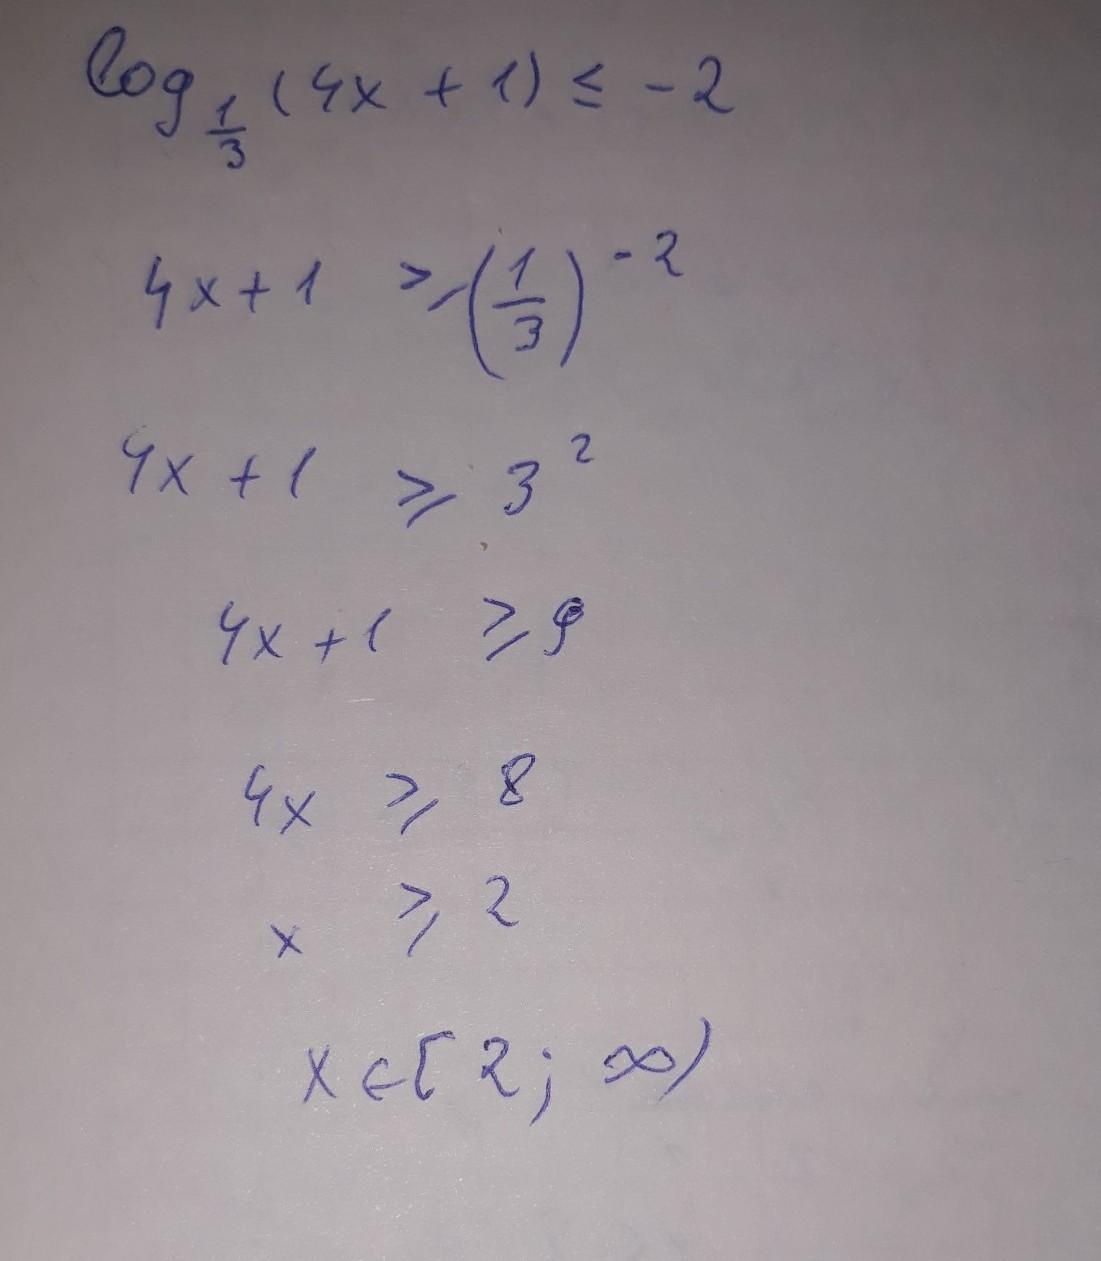 log_{1/3} (4x + 1) ≤ -2
4x + 1 ≥ (1/3)^{-2}
4x + 1 ≥ 3^2
4x + 1 ≥ 9
4x ≥ 8
x ≥ 2
x ∈ [2; ∞)